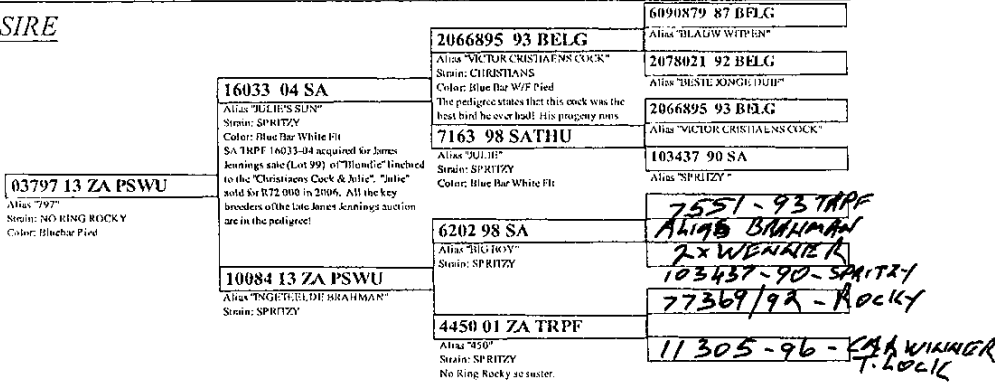 SIRE
03797 13 ZA PSWU
Alias "797"
Strain: NO RING ROCKY
Color: Bluebar Pied
16033 04 SA
Alias "JULIE'S SUN"
Strain: SPRITZY
Color: Blue Bar White Flt
SA TRPF 16033-04 acquired for James
Jennings sale (Lot 99) of "Blondie" linebred
to the "Christiaens Cock & Julie". "Julie"
sold for R72 000 in 2006. All the key
breeders of the late James Jennings auction
are in the pedigree!
10084 13 ZA PSWU
Alias "INGETEELDE BRAHMAN"
Strain: SPRITZY
2066895 93 BELG
Alias "VICTOR CRISTIAENS COCK"
Strain: CHRISTIANS
Color: Blue Bar W/F Pied
The pedigree states that this cock was the
best bird he ever had! His progeny runs
7163 98 SATHU
Alias "JULIE"
Strain: SPRITZY
Color: Blue Bar White Flt
6202 98 SA
Alias "BIG BOY"
Strain: SPRITZY
4450 01 ZA TRPF
Alias "450"
Strain: SPRITZY
No Ring Rocky se suster.
6090879 87 BELG
Alias "BLAUW WITPEN"
2078021 92 BELG
Alias "BESTE JONGE DUIF"
2066895 93 BELG
Alias "VICTOR CRISTIAENS COCK"
103437 90 SA
Alias "SPRITZY "
7551-93 TRPF
ALIAS BRAHMAN
2x WENNER
103437-90-SPRITZY
77369/92 - ROCKY
11305-96 - WINNER
T. LOCK